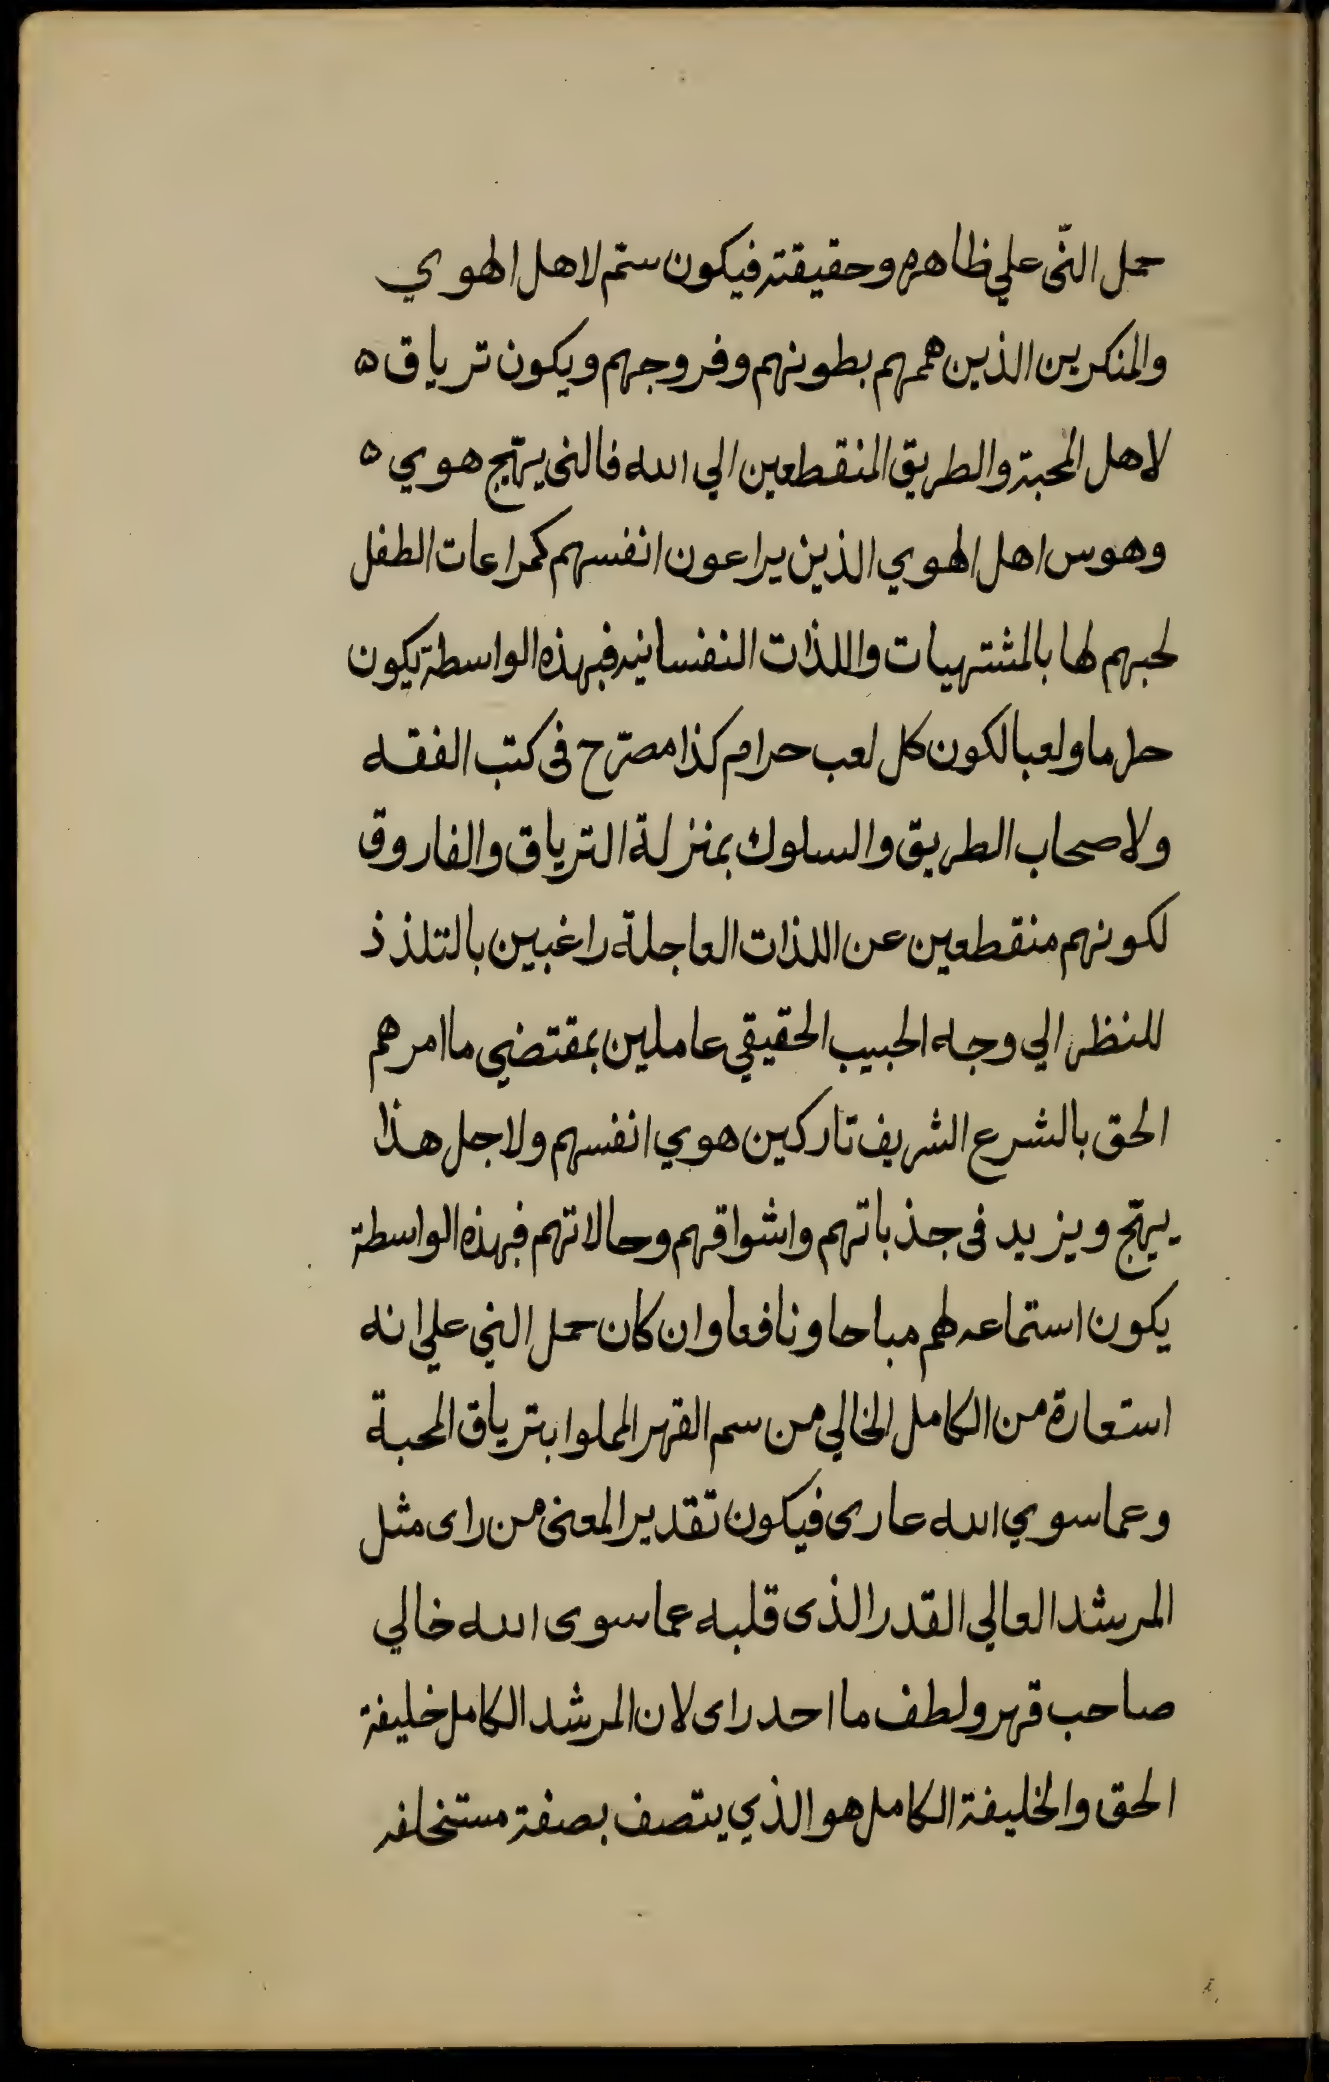 حمل النّى علي ظاهره وحقيقته فيكون ستم لاهل الهوي
والمنكرين الذين همهم بطونهم وفروجهم ويكون ترياق ه
لاهل المحبة والطريق المنقطعين الي الله فالنى يهيّج هوي ه
وهوس اهل الهوي الذين يراعون انفسهم كمراعات الطفل
لحبهم لها بالمشتهيات واللذات النفسانيه فبهذه الواسطة يكون
حراما ولعبا لكون كل لعب حرام كذا مصرّح فى كتب الفقه
ولاصحاب الطريق والسلوك بمنزلة الترياق والفاروق
لكونهم منقطعين عن اللذات العاجلة راغبين بالتلذذ
للنظر الي وجه الحبيب الحقيقي عاملين بمقتضي ما امرهم
الحق بالشرع الشريف تاركين هوي انفسهم ولاجل هذا
يهيّج ويزيد فى جذباتهم واشواقهم وحالاتهم فبهذه الواسطة
يكون استماعه لهم مباحا ونافعا وان كان حمل الني علي انه
استعارة من الكامل الخالي من سم القهر المملوا بترياق المحبة
وعما سوي الله عارى فيكون تقدير المعنى من راى مثل
المرشد العالي القدر الذى قلبه عما سوى الله خالي
صاحب قهر ولطف ما احد راى لان المرشد الكامل خليفة
الحق والخليفة الكامل هو الذي يتصف بصفة مستخلفه